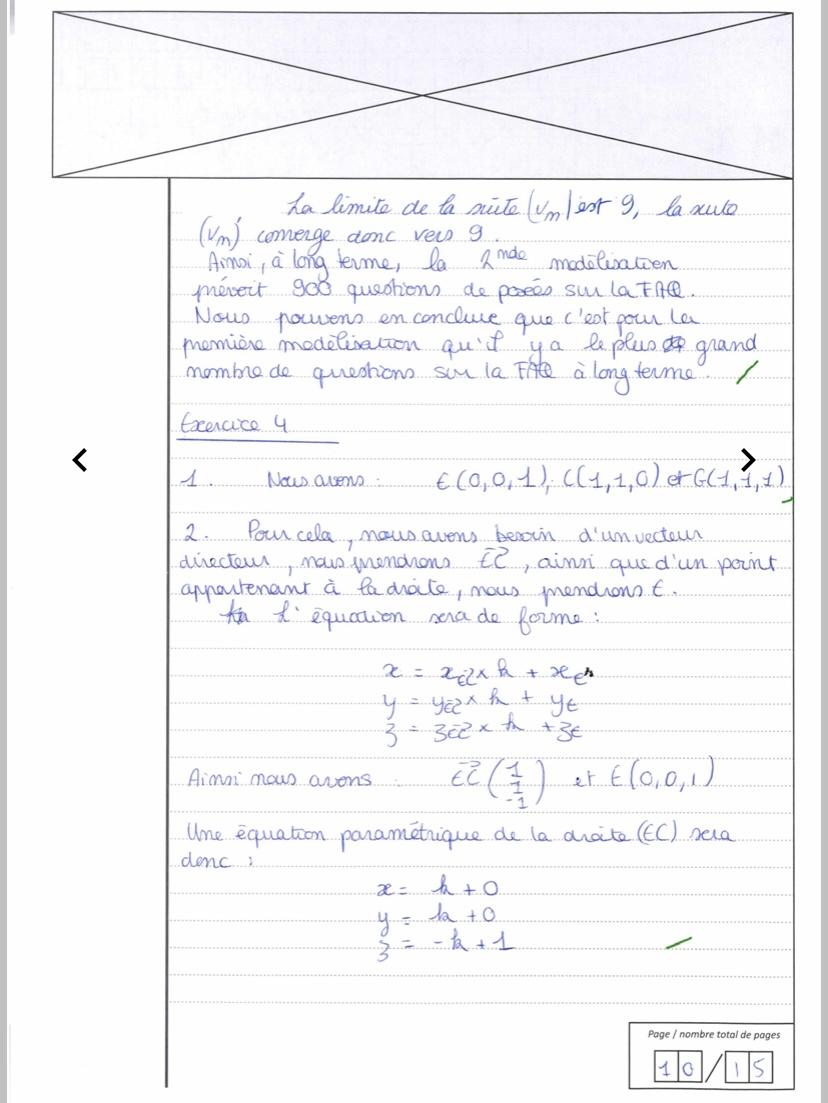 La limite de la suite (vn) est 9, la suite
(vn) converge donc vers 9.
Ainsi, à long terme, la 2nde modélisation
prévoit 900 questions de posées sur la FAQ.
Nous pouvons en conclure que c'est pour la
première modélisation qu'il y a le plus grand
nombre de questions sur la FAQ à long terme.
Exercice 4
1. Nous avons : E(0,0,1), C(1,1,0) et G(1,1,1)
2. Pour cela, nous avons besoin d'un vecteur
directeur, nous prendrons EC⃗, ainsi que d'un point
appartenant à la droite, nous prendrons E.
L'équation sera de forme :
x = xEC⃗ × k + xE
y = yEC⃗ × k + yE
z = zEC⃗ × k + zE
Ainsi nous avons : EC⃗ (1 1 -1) et E(0,0,1)
Une équation paramétrique de la droite (EC) sera
donc :
x = k + 0
y = k + 0
z = -k + 1
Page / nombre total de pages
10/15